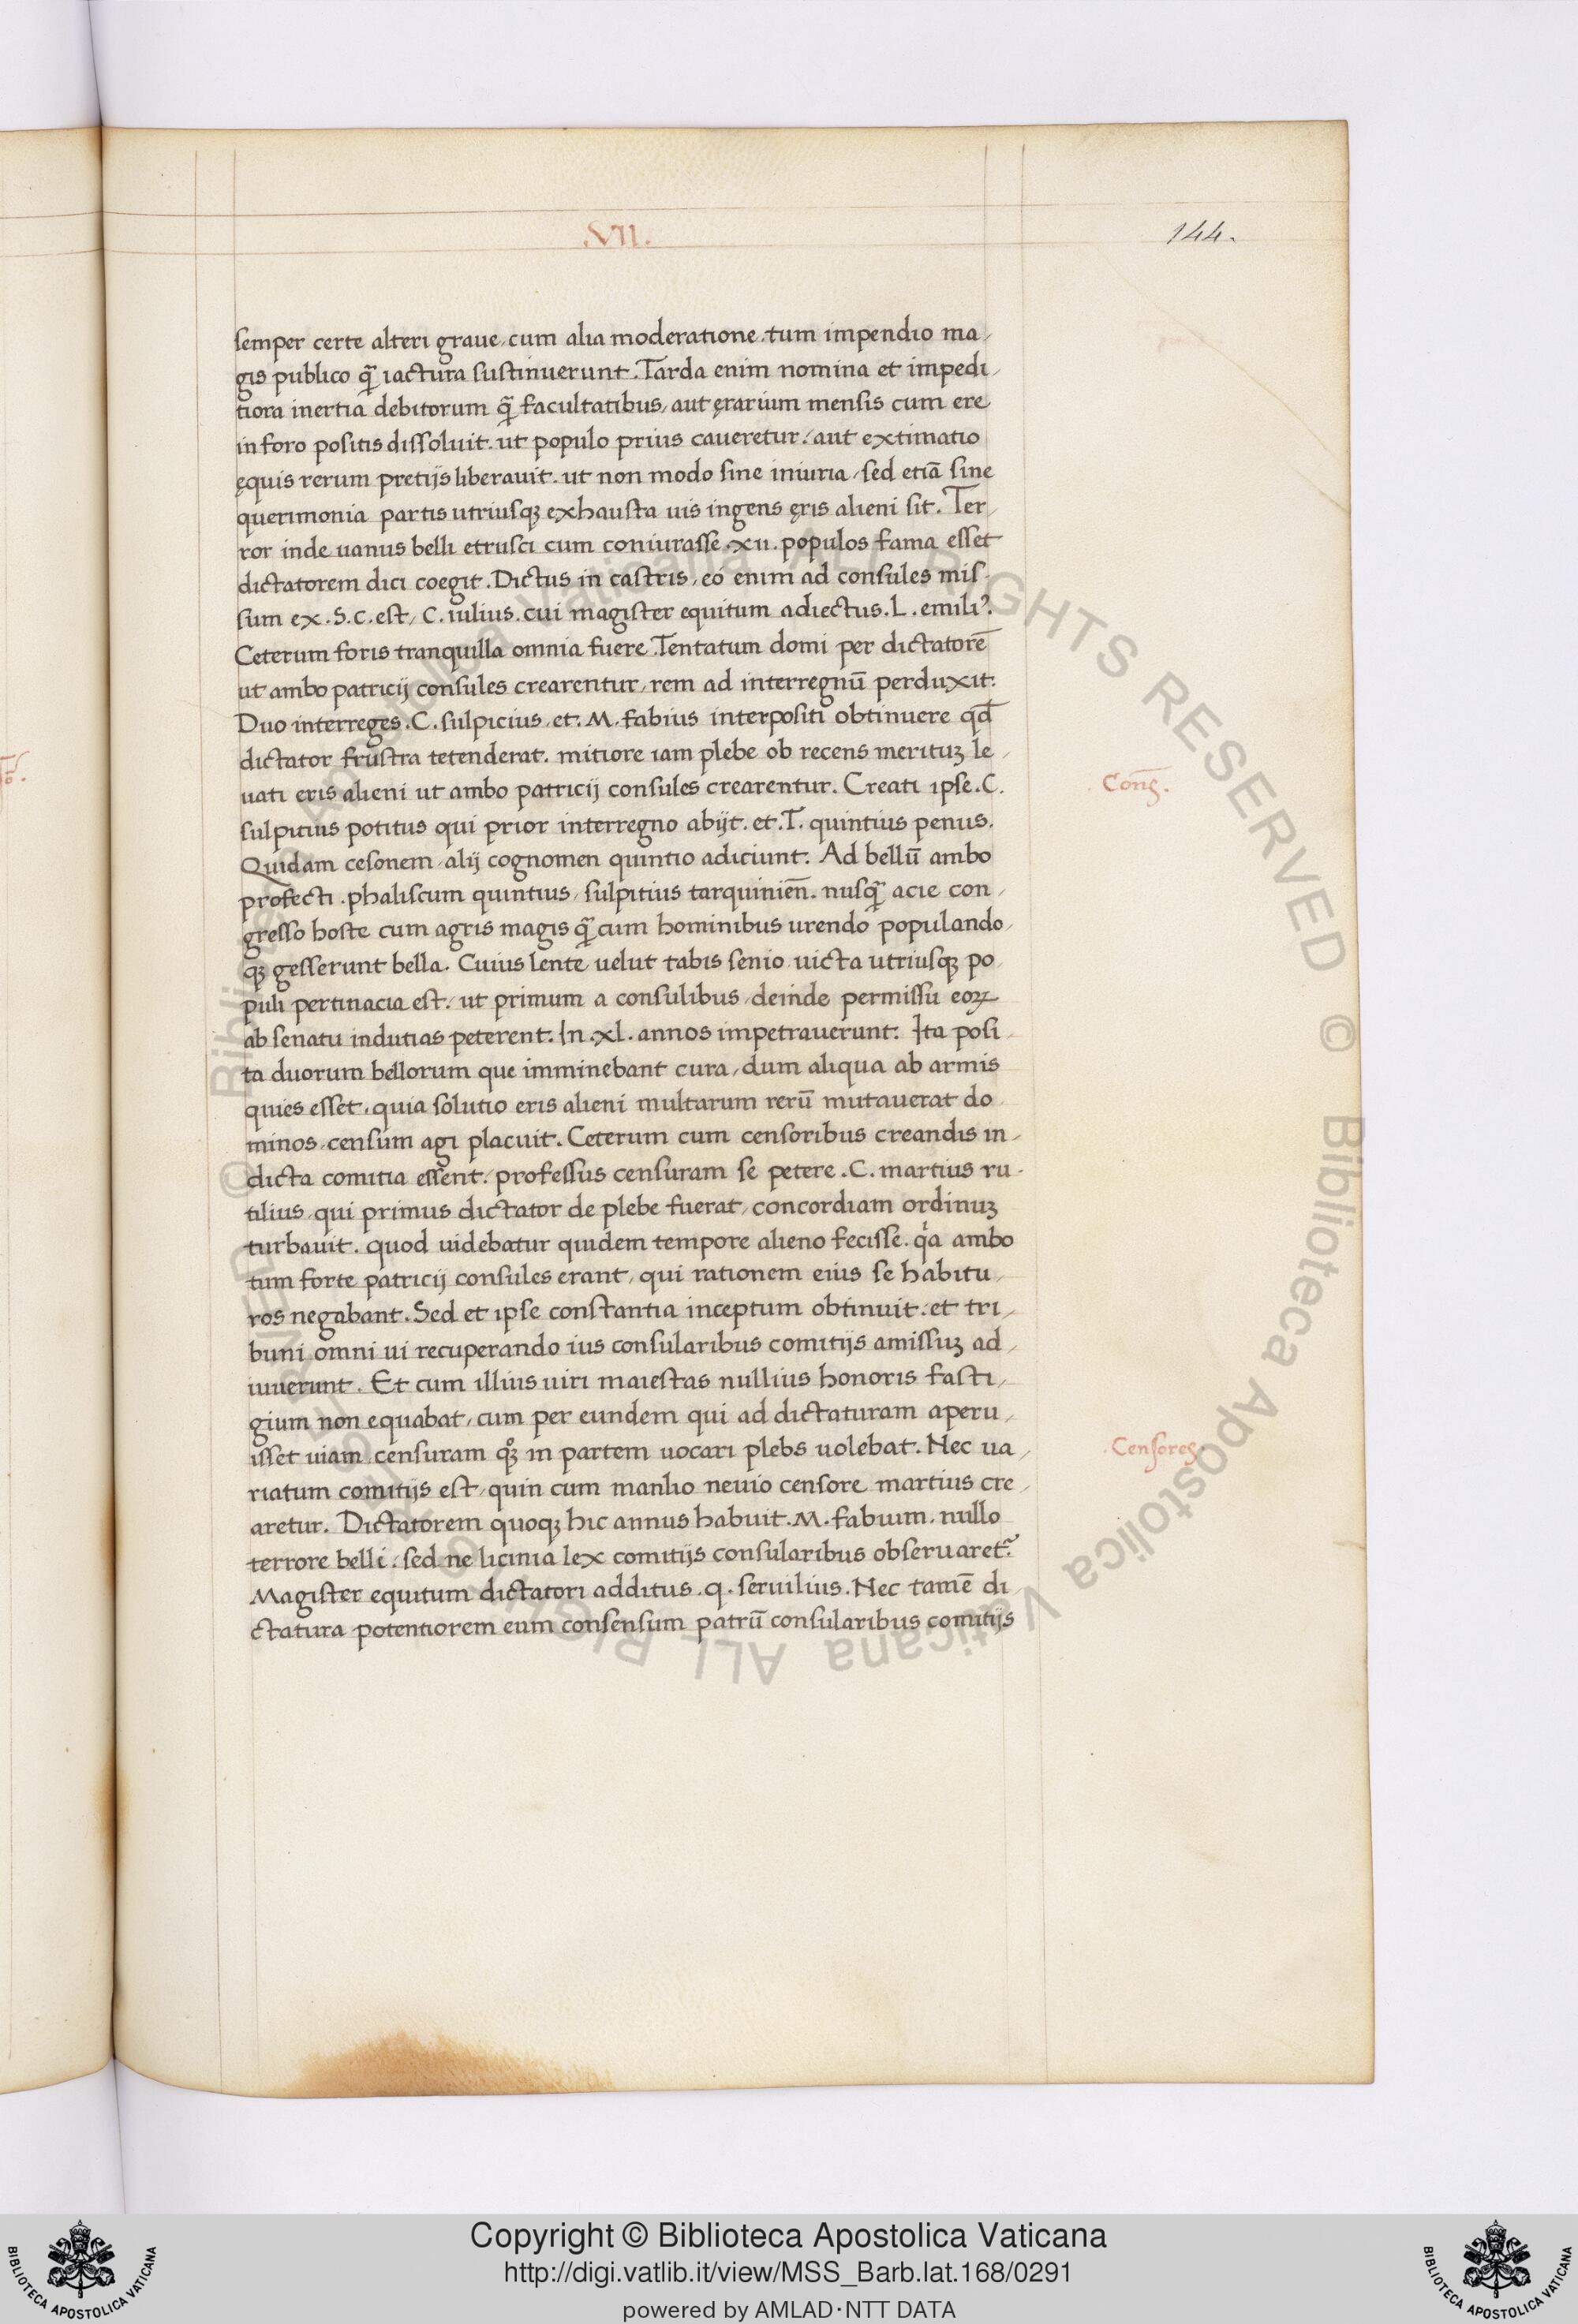 .VII.
144.
semper certe alteri graue, cum alia moderatione. tum impendio ma,
gis publico q̃ iactura sustinuerunt. Tarda enim nomina et impedi,
tiora inertia debitorum q̃ facultatibus, aut ęrarium mensis cum ere
in foro positis dissoluit. ut populo prius caueretur. aut extimatio
ęquis rerum pretijs liberauit. ut non modo sine iniuria, sed etiã sine
querimonia partis utriusqꝫ exhausta uis ingens ęris alieni sit. Ter,
ror inde uanus belli etrusci cum coniurasse .xii. populos fama esset
dictatorem dici coegit. Dictus in castris, eó enim ad consules mis,
sum ex .S.C. est, C. iulius. cui magister equitum adiectus. L. emiliꝰ.
Ceterum foris tranquilla omnia fuere. Tentatum domi per dictatorē
ut ambo patricij consules crearentur, rem ad interregnū perduxit:
Duo interreges .C. sulpicius. et .M. fabius interpositi obtinuere qd̄
dictator frustra tetenderat. mitiore iam plebe ob recens merituꝫ le,
uati eris alieni ut ambo patricij consules crearentur. Creati ipse .C.
Conṣ̄.
sulpitius potitus qui prior interregno abijt. et .T. quintius penus.
Quidam cesonem, alij cognomen quintio adiciunt. Ad bellū ambo
profecti. phaliscum quintius, sulpitius tarquinien̄. nusq̃ acie con,
gresso hoste cum agris magis q̃ cum hominibus urendo populando,
qꝫ gesserunt bella. Cuius lente uelut tabis senio uicta utriusqꝫ po,
puli pertinacia est. ut primum a consulibus, deinde permissu eoꝝ
ab senatu indutias peterent. In .xl. annos impetrauerunt: Ita posi,
ta duorum bellorum que imminebant cura, dum aliqua ab armis
quies esset, quia solutio eris alieni multarum rerū mutauerat do,
minos, censum agi placuit. Ceterum cum censoribus creandis in,
dicta comitia essent. professus censuram se petere .C. martius ru,
tilius, qui primus dictator de plebe fuerat, concordiam ordinuꝫ
turbauit. quod uidebatur quidem tempore alieno fecisse. qͥa ambo
tum forte patricij consules erant, qui rationem eius se habitu,
ros negabant. Sed et ipse constantia inceptum obtinuit: et tri,
buni omni ui recuperando ius consularibus comitijs amissuꝫ ad,
iuuerunt. Et cum illius uiri maiestas nullius honoris fasti,
gium non equabat, cum per eundem qui ad dictaturam aperu,
isset uiam censuram qͦꝫ in partem uocari plebs uolebat. Nec ua,
Censores.
riatum comitijs est, quin cum manlio neuio censore martius cre,
aretur. Dictatorem quoqꝫ hic annus habuit .M. fabium. nullo
terrore belli. sed ne licinia lex comitijs consularibus obseruaret᷑.
Magister equitum dictatori additus .q. seruilius. Nec tamē di,
ctatura potentiorem eum consensum patrū consularibus comitijs
Copyright © Biblioteca Apostolica Vaticana
http://digi.vatlib.it/view/MSS_Barb.lat.168/0291
powered by AMLAD·NTT DATA